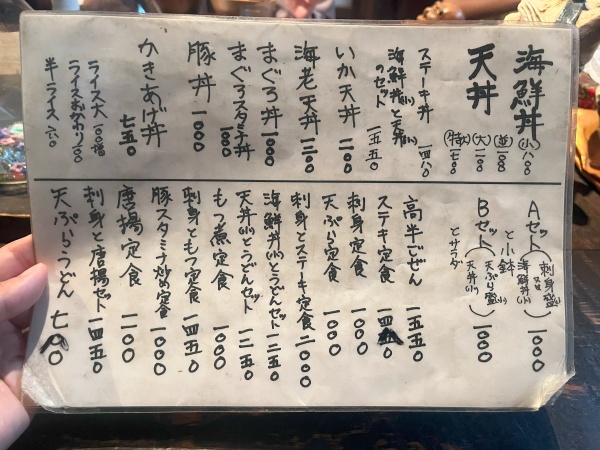 海鮮丼(小)八〇〇
天丼
(並)一〇〇〇
(大)
(特大)一七〇〇
ステーキ丼 一四八〇
海鮮丼(小)と天丼(小)
のセット 一五五〇
いか天丼 一二〇〇
海老天丼 一二〇〇
まぐろ丼 一〇〇〇
まぐろスタミナ丼 一〇〇〇
豚丼 一〇〇〇
かきあげ丼 七五〇
ライス大 一〇〇増
ライスおかわり 二〇〇
半ライス
Aセット
刺身盛(小)
又は
海鮮丼(小)
と小鉢
一〇〇〇
Bセット
天ぷら盛(小)
天丼(小)
とサラダ
一〇〇〇
高半ごぜん 一五五〇
ステーキ定食
刺身定食 一〇〇〇
天ぷら定食 一〇〇〇
刺身とステーキ定食 二〇〇〇
海鮮丼(小)とうどんセット 一二五〇
天丼(小)とうどんセット 一二五〇
もつ煮定食 一〇〇〇
刺身ともつ定食 一四五〇
豚スタミナ炒め定食 一〇〇〇
唐揚定食 一一〇〇
刺身と唐揚セット 一四五〇
天ぷらうどん